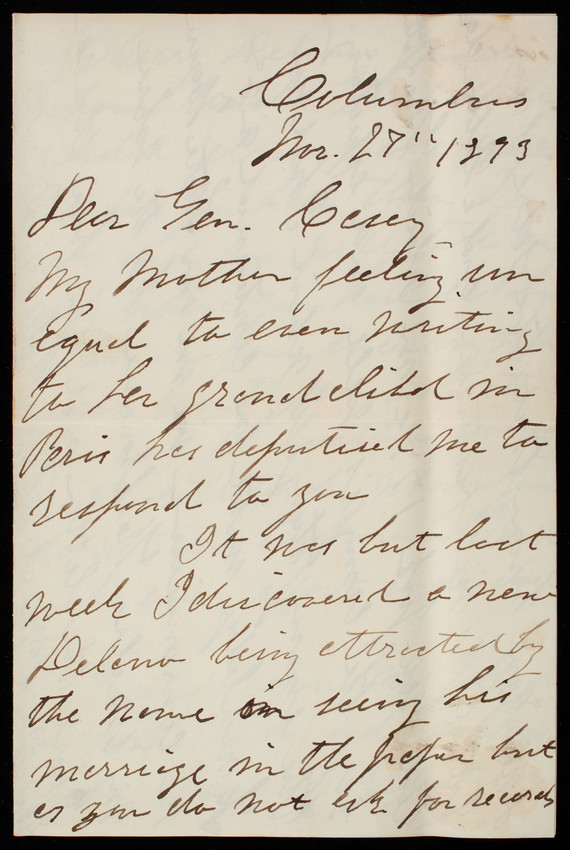 Columbus
Nov. 27" 1893
Dear Gen. Casey
My Mother feeling un
equal to even writing
to her grand child in
Paris has deputised me to
respond to you
It was but last
week I discovered a new
Delano being attracted by
the name in seeing his
marriage in the paper but
as you do not ask for records